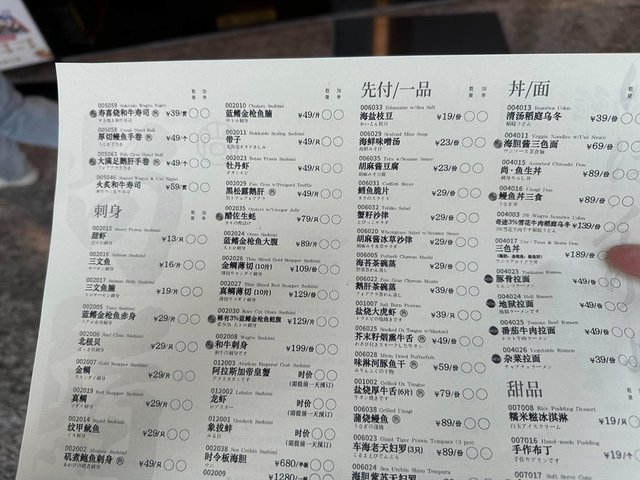 数量 加单
005059 Sukiyaki Wagyu Nigiri
寿喜烧和牛寿司 ¥39/贯
005058 Unagi Hand Roll
厚切鳗鱼手卷 ¥49/个
005063 Foie Gras Hand Roll
大满足鹅肝手卷 ¥49/个
火炙和牛寿司 ¥59/贯
刺身
数量 加单
002015 Sweet Prawn Sashimi
甜虾 ¥13/只
002016 Salmon Sashimi
三文鱼 ¥16/片
002017 Salmon Belly Sashimi
三文鱼腩 ¥19/片
002005 Tuna Sashimi
蓝鳍金枪鱼赤身 ¥29/片
002006 Surf Clam Sashimi
北极贝 ¥29/片
002007 Snapper Sashimi
金鲷 ¥29/片
002019 Red Snapper Sashimi
真鲷 ¥29/片
002014 Squid Sashimi
纹甲鱿鱼 ¥29/片
002002 Abalone Sashimi
矶煮鲍鱼刺身 ¥49/只
数量 加单
002010 Chutoro Sashimi
蓝鳍金枪鱼腩 ¥49/片
002011 Hokkaido Scallop Sashimi
带子 ¥49/片
002023 Botan Prawn Sashimi
牡丹虾 ¥49/片
002029 Foie Gras w/Périgord Truffle
黑松露鹅肝 ¥49/片
002035 Oysters w/Vinegar Jelly
醋佐生蚝 ¥79/只
002024 Otoro Sashimi
蓝鳍金枪鱼大腹 ¥89/片
002026 Thin Sliced Gold Snapper Sashimi
金鲷薄切 (10片) ¥109/份
002027 Thin Sliced Red Snapper Sashimi
真鲷薄切 (10片) ¥129/份
002030 Rare Fat Otoro Sashimi
稀有3%蓝鳍金枪鱼蛇腹 ¥129/片
002008 Wagyu Sashimi
和牛刺身 ¥199/份
012003 Alaskan Emperor Crab Sashimi
阿拉斯加帝皇蟹 时价
(需提前一天预订)
012002 Lobster Sashimi
龙虾 时价
(需提前一天预订)
012001 Geoduck Sashimi
象拔蚌 时价
(需提前一天预订)
002038 Sea Urchin Sashimi
时令板海胆 ¥680/半板
002009 ¥1280/一板
先付/一品
数量 加单
006033 Edamame w/Sea Salt
海盐枝豆 ¥19/份
006029 Seafood Miso Soup
海鲜味噌汤 ¥23/份
006035 Tofu w/Sesame Sauce
胡麻酱豆腐 ¥23/份
006031 Codfish Shirt
鳕鱼脆片 ¥29/份
006032 Tobiko Salad
蟹籽沙律 ¥29/份
胡麻酱冰草沙律 ¥29/份
006005 Fotheck Chawan Mushi
海苔茶碗蒸 ¥29/份
006022 Foie Gras Chawan Mushi
鹅肝茶碗蒸 ¥39/份
001007 Salt Burn Prawns
盐烧大虎虾 ¥39/只
006025 Smoked Ox Tongue w/Mustard
芥末籽烟熏牛舌 ¥49/份
006028 Mirin Dried Pufferfish
味淋河豚鱼干 ¥59/份
001002 Grilled Ox Tongue
盐烧厚牛舌(6片) ¥79/份
006038 Grilled Unagi
蒲烧鳗鱼 ¥89/份
006023 Giant Tiger Prawn Tempura (3 pcs)
车海老天妇罗(3只) ¥89/份
006024 Sea Urchin Shiso Tempura
丼/面
004013 Inaniwa Udon
清汤稻庭乌冬 ¥39/份
004011 Veggie Noodles w/Uni Sauce
海胆酱三色面 ¥69/份
004015 Assorted Chirashi Don
尚·鱼生丼 ¥89/份
004016 Unagi Don
鳗鱼丼三食 ¥89/份
004003 3% Wagyu Inaniwa Udon
奇迹3%雪花牛肉稻庭乌冬 ¥139/份
三色丼 ¥189/份
004023 Tonkotsu Ramen
豚骨拉面
004024 Hell Ramen
地狱拉面
004025 Tomato Beef Ramen
番茄牛肉拉面
004026 Vegetable Ramen
杂菜拉面
甜品
007008 Rice Pudding Dessert
糯米糍冰淇淋 ¥19/只
007016 Hand-made Pudding
手作布丁 ¥19/个
007017 Soft Serve Cone